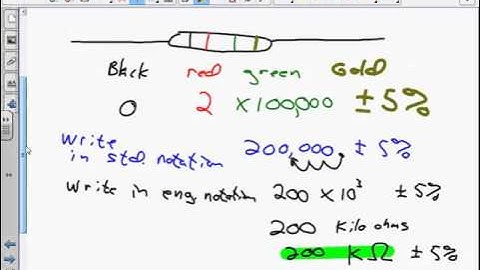 Black red green Gold
0 2 x100,000 ±5%
Write in std. notation 200,000. ± 5%
Write in eng. notation 200 x 10³ ±5%
200 Kilo ohms
200 K Ω ± 5%